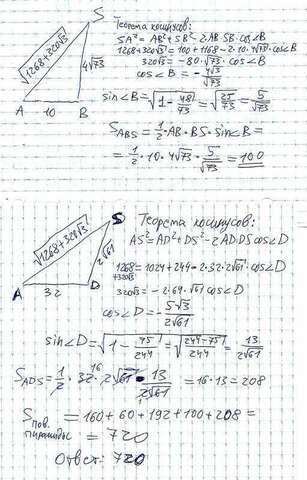 S
√1268+320√3
4√73
A 10 B
Теорема косинусов:
SA² = AB² + SB² - 2·AB·SB·cos∠B
1268+320√3 = 100+1168-2·10·4√73·cosB
320√3 = -80·√73·cos∠B
cos∠B = - 4√3/√73
sin∠B = √1 - 48/73 = √25/73 = 5/√73
S_ABS = 1/2·AB·BS·sin∠B =
= 1/2·10·4√73·5/√73 = 100
S
√1268+320√3
2√61
A 32 D
Теорема косинусов:
AS² = AD² + DS² - 2AD·DS cos∠D
1268+320√3 = 1024+244-2·32·2√61·cos∠D
320√3 = -2·64·√61 cos∠D
cos∠D = - 5√3/2√61
sin∠D = √1 - 75/244 = √244-75/244 = 13/2√61
S_ADS = 1/2·32 16·2√61·13/2√61 = 16·13 = 208
S пов. пирамиды = 160+60+192+100+208 =
= 720
Ответ: 720